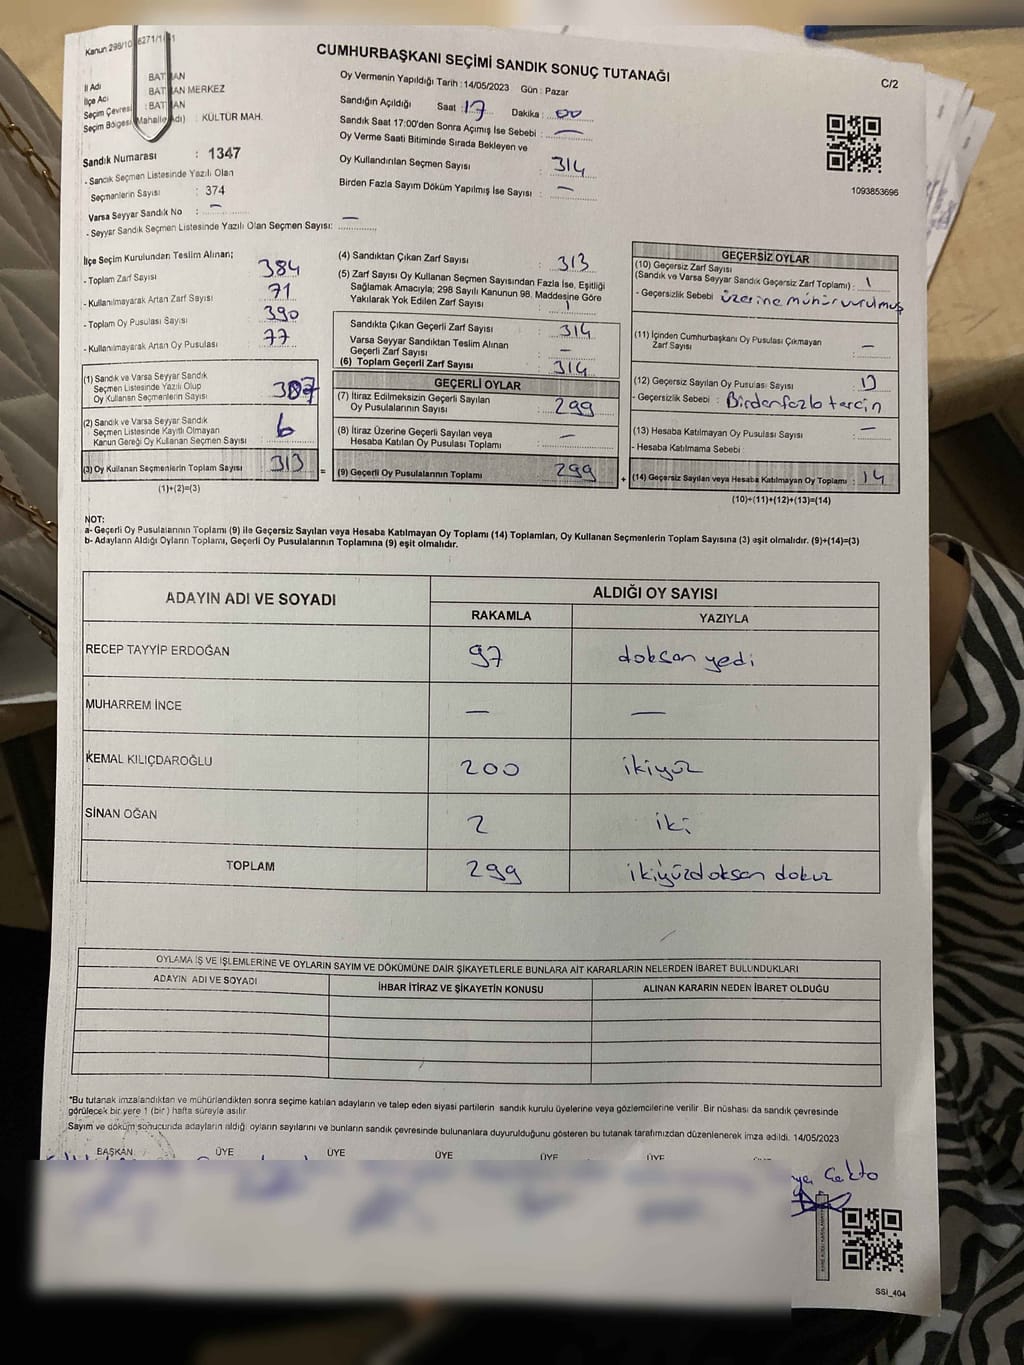 Kanun 298/10
CUMHURBAŞKANI SEÇİMİ SANDIK SONUÇ TUTANAĞI
C/2
Oy Vermenin Yapıldığı Tarih : 14/05/2023 Gün : Pazar
İl Adı BATMAN
İlçe Adı BATMAN MERKEZ
Seçim Çevresi : BATMAN
Seçim Bölgesi (Mahalle Adı) : KÜLTÜR MAH.
Sandığın Açıldığı Saat : 17 Dakika : 00
Sandık Saat 17:00'den Sonra Açımış İse Sebebi : —
Oy Verme Saati Bitiminde Sırada Bekleyen ve
Oy Kullandırılan Seçmen Sayısı : 314
Birden Fazla Sayım Döküm Yapılmış İse Sayısı : —
1093853696
Sandık Numarası : 1347
- Sandık Seçmen Listesinde Yazılı Olan
Seçmenlerin Sayısı : 374
Varsa Seyyar Sandık No : —
- Seyyar Sandık Seçmen Listesinde Yazılı Olan Seçmen Sayısı: —
İlçe Seçim Kurulundan Teslim Alınan;
- Toplam Zarf Sayısı : 384
- Kullanılmayarak Artan Zarf Sayısı : 71
- Toplam Oy Pusulası Sayısı : 390
- Kullanılmayarak Artan Oy Pusulası : 77
(1) Sandık ve Varsa Seyyar Sandık
Seçmen Listesinde Yazılı Olup
Oy Kullanan Seçmenlerin Sayısı : 307
(2) Sandık ve Varsa Seyyar Sandık
Seçmen Listesinde Kayıtlı Olmayan
Kanun Gereği Oy Kullanan Seçmen Sayısı : 6
(3) Oy Kullanan Seçmenlerin Toplam Sayısı : 313 =
(1)+(2)=(3)
(4) Sandıktan Çıkan Zarf Sayısı : 313
(5) Zarf Sayısı Oy Kullanan Seçmen Sayısından Fazla İse, Eşitliği
Sağlamak Amacıyla; 298 Sayılı Kanunun 98. Maddesine Göre
Yakılarak Yok Edilen Zarf Sayısı : 1
Sandıkta Çıkan Geçerli Zarf Sayısı : 314
Varsa Seyyar Sandıktan Teslim Alınan
Geçerli Zarf Sayısı : —
(6) Toplam Geçerli Zarf Sayısı : 314
GEÇERLİ OYLAR
(7) İtiraz Edilmeksizin Geçerli Sayılan
Oy Pusulalarının Sayısı : 299
(8) İtiraz Üzerine Geçerli Sayılan veya
Hesaba Katılan Oy Pusulası Toplamı : —
(9) Geçerli Oy Pusulalarının Toplamı : 299 +
GEÇERSİZ OYLAR
(10) Geçersiz Zarf Sayısı
(Sandık ve Varsa Seyyar Sandık Geçersiz Zarf Toplamı) : 1
- Geçersizlik Sebebi : üzerine mühür vurulmuş
(11) İçinden Cumhurbaşkanı Oy Pusulası Çıkmayan
Zarf Sayısı : —
(12) Geçersiz Sayılan Oy Pusulası Sayısı :
- Geçersizlik Sebebi : Birden fazla tercih
(13) Hesaba Katılmayan Oy Pusulası Sayısı : —
- Hesaba Katılmama Sebebi :
(14) Geçersiz Sayılan veya Hesaba Katılmayan Oy Toplamı : 14
(10)+(11)+(12)+(13)=(14)
NOT:
a- Geçerli Oy Pusulalarının Toplamı (9) ile Geçersiz Sayılan veya Hesaba Katılmayan Oy Toplamı (14) Toplamları, Oy Kullanan Seçmenlerin Toplam Sayısına (3) eşit olmalıdır. (9)+(14)=(3)
b- Adayların Aldığı Oyların Toplamı, Geçerli Oy Pusulalarının Toplamına (9) eşit olmalıdır.
ADAYIN ADI VE SOYADI ALDIĞI OY SAYISI
RAKAMLA YAZIYLA
RECEP TAYYİP ERDOĞAN 97 doksan yedi
MUHARREM İNCE — —
KEMAL KILIÇDAROĞLU 200 ikiyüz
SİNAN OĞAN 2 iki
TOPLAM 299 ikiyüzdoksan dokuz
OYLAMA İŞ VE İŞLEMLERİNE VE OYLARIN SAYIM VE DÖKÜMÜNE DAİR ŞİKAYETLERLE BUNLARA AİT KARARLARIN NELERDEN İBARET BULUNDUKLARI
ADAYIN ADI VE SOYADI İHBAR İTİRAZ VE ŞİKAYETİN KONUSU ALINAN KARARIN NEDEN İBARET OLDUĞU
*Bu tutanak imzalandıktan ve mühürlendikten sonra seçime katılan adayların ve talep eden siyasi partilerin sandık kurulu üyelerine veya gözlemcilerine verilir. Bir nüshası da sandık çevresinde
görülecek bir yere 1 (bir) hafta süreyle asılır.
Sayım ve döküm sonucunda adayların aldığı oyların sayılarını ve bunların sandık çevresinde bulunanlara duyurulduğunu gösteren bu tutanak tarafımızdan düzenlenerek imza edildi. 14/05/2023
BAŞKAN ÜYE ÜYE ÜYE ÜYE ÜYE
SSI_404